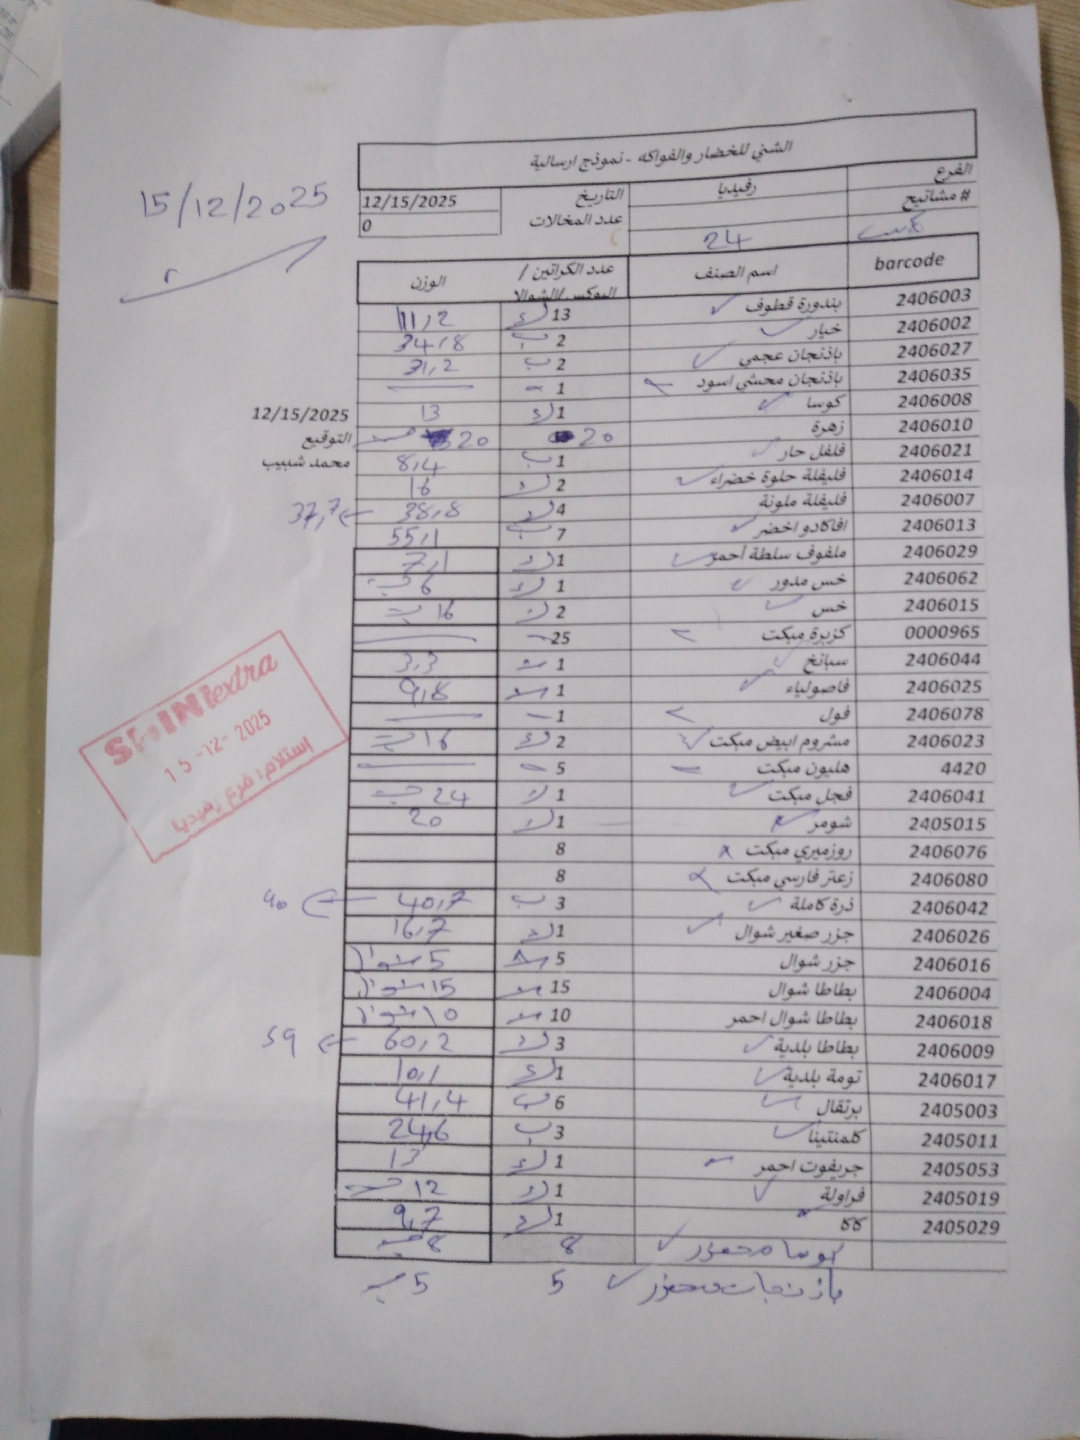 الشني للخضار والفواكه - نموذج ارسالية
الفرع رفيديا التاريخ 12/15/2025
# مشاتيح عدد المخالات 0
24
15/12/2025
barcode اسم الصنف عدد الكراتين / البوكس/الشوالا الوزن
2406003 بندورة قطوف 13 11,2
2406002 خيار 2 ب 34,8
2406027 باذنجان عجمي 2 ب 31,2
2406035 باذنجان محشي اسود 1
2406008 كوسا 1 13
12/15/2025
2406010 زهرة 20 20
التوقيع
2406021 فلفل حار 1 ب 8,4
محمد شبيب
2406014 فليفلة حلوة خضراء 2 16
2406007 فليفلة ملونة 4 38,8 37,7
2406013 افاكادو اخضر 7 ب 55,1
2406029 ملفوف سلطة أحمر 1 7,1
2406062 خس مدور 1 6
2406015 خس 2 16
0000965 كزبرة مبكت 25
2406044 سبانخ 1 3,3
2406025 فاصولياء 1 9,8
2406078 فول 1
2406023 مشروم ابيض مبكت 2 16
4420 هليون مبكت 5
2406041 فجل مبكت 1 24
2405015 شومر 1 20
2406076 روزميري مبكت 8
2406080 زعتر فارسي مبكت 8
2406042 ذرة كاملة 3 ب 40,7
2406026 جزر صغير شوال 1 16,7
2406016 جزر شوال 5 5 شوال
2406004 بطاطا شوال 15 15 شوال
2406018 بطاطا شوال احمر 10 10 شوال
2406009 بطاطا بلدية 3 60,2 59
2406017 تومة بلدية 1 10,1
2405003 برتقال 6 ب 41,4
2405011 كلمنتينا 3 ب 24,6
2405053 جريفوت احمر 1 13
2405019 فراولة 1 12
2405029 كاكا 1 9,7
كوسا محفور 8 8
باذنجان محفور 5 5
SHINI extra
15-12-2025
إستلام: فرع رفيديا